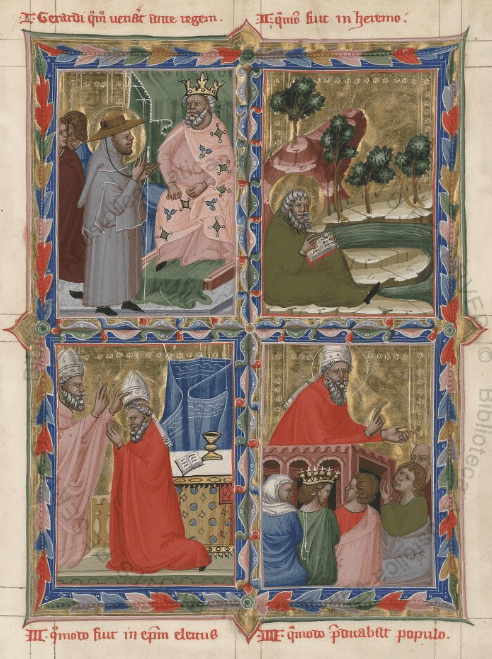 I. Gerardi qm̃ venĩt ante regem.
II. qm̃o fuit in heremo.
III. qm̃odo fuit in ep̃m electus
IIII. qm̃odo p̃dicabat populo.
Biblioteca